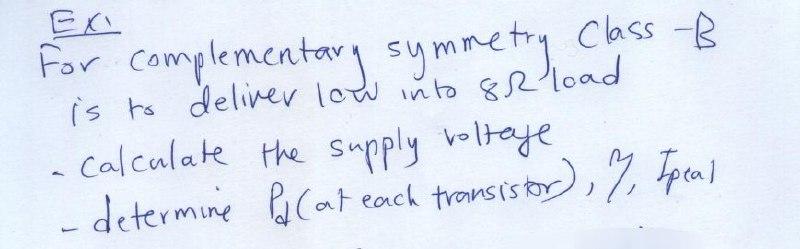 Ex:
For complementary symmetry Class -B
is to deliver 10w into 8Ω load
- Calculate the supply voltage
- determine Pd (at each transistor), η, Ipeak